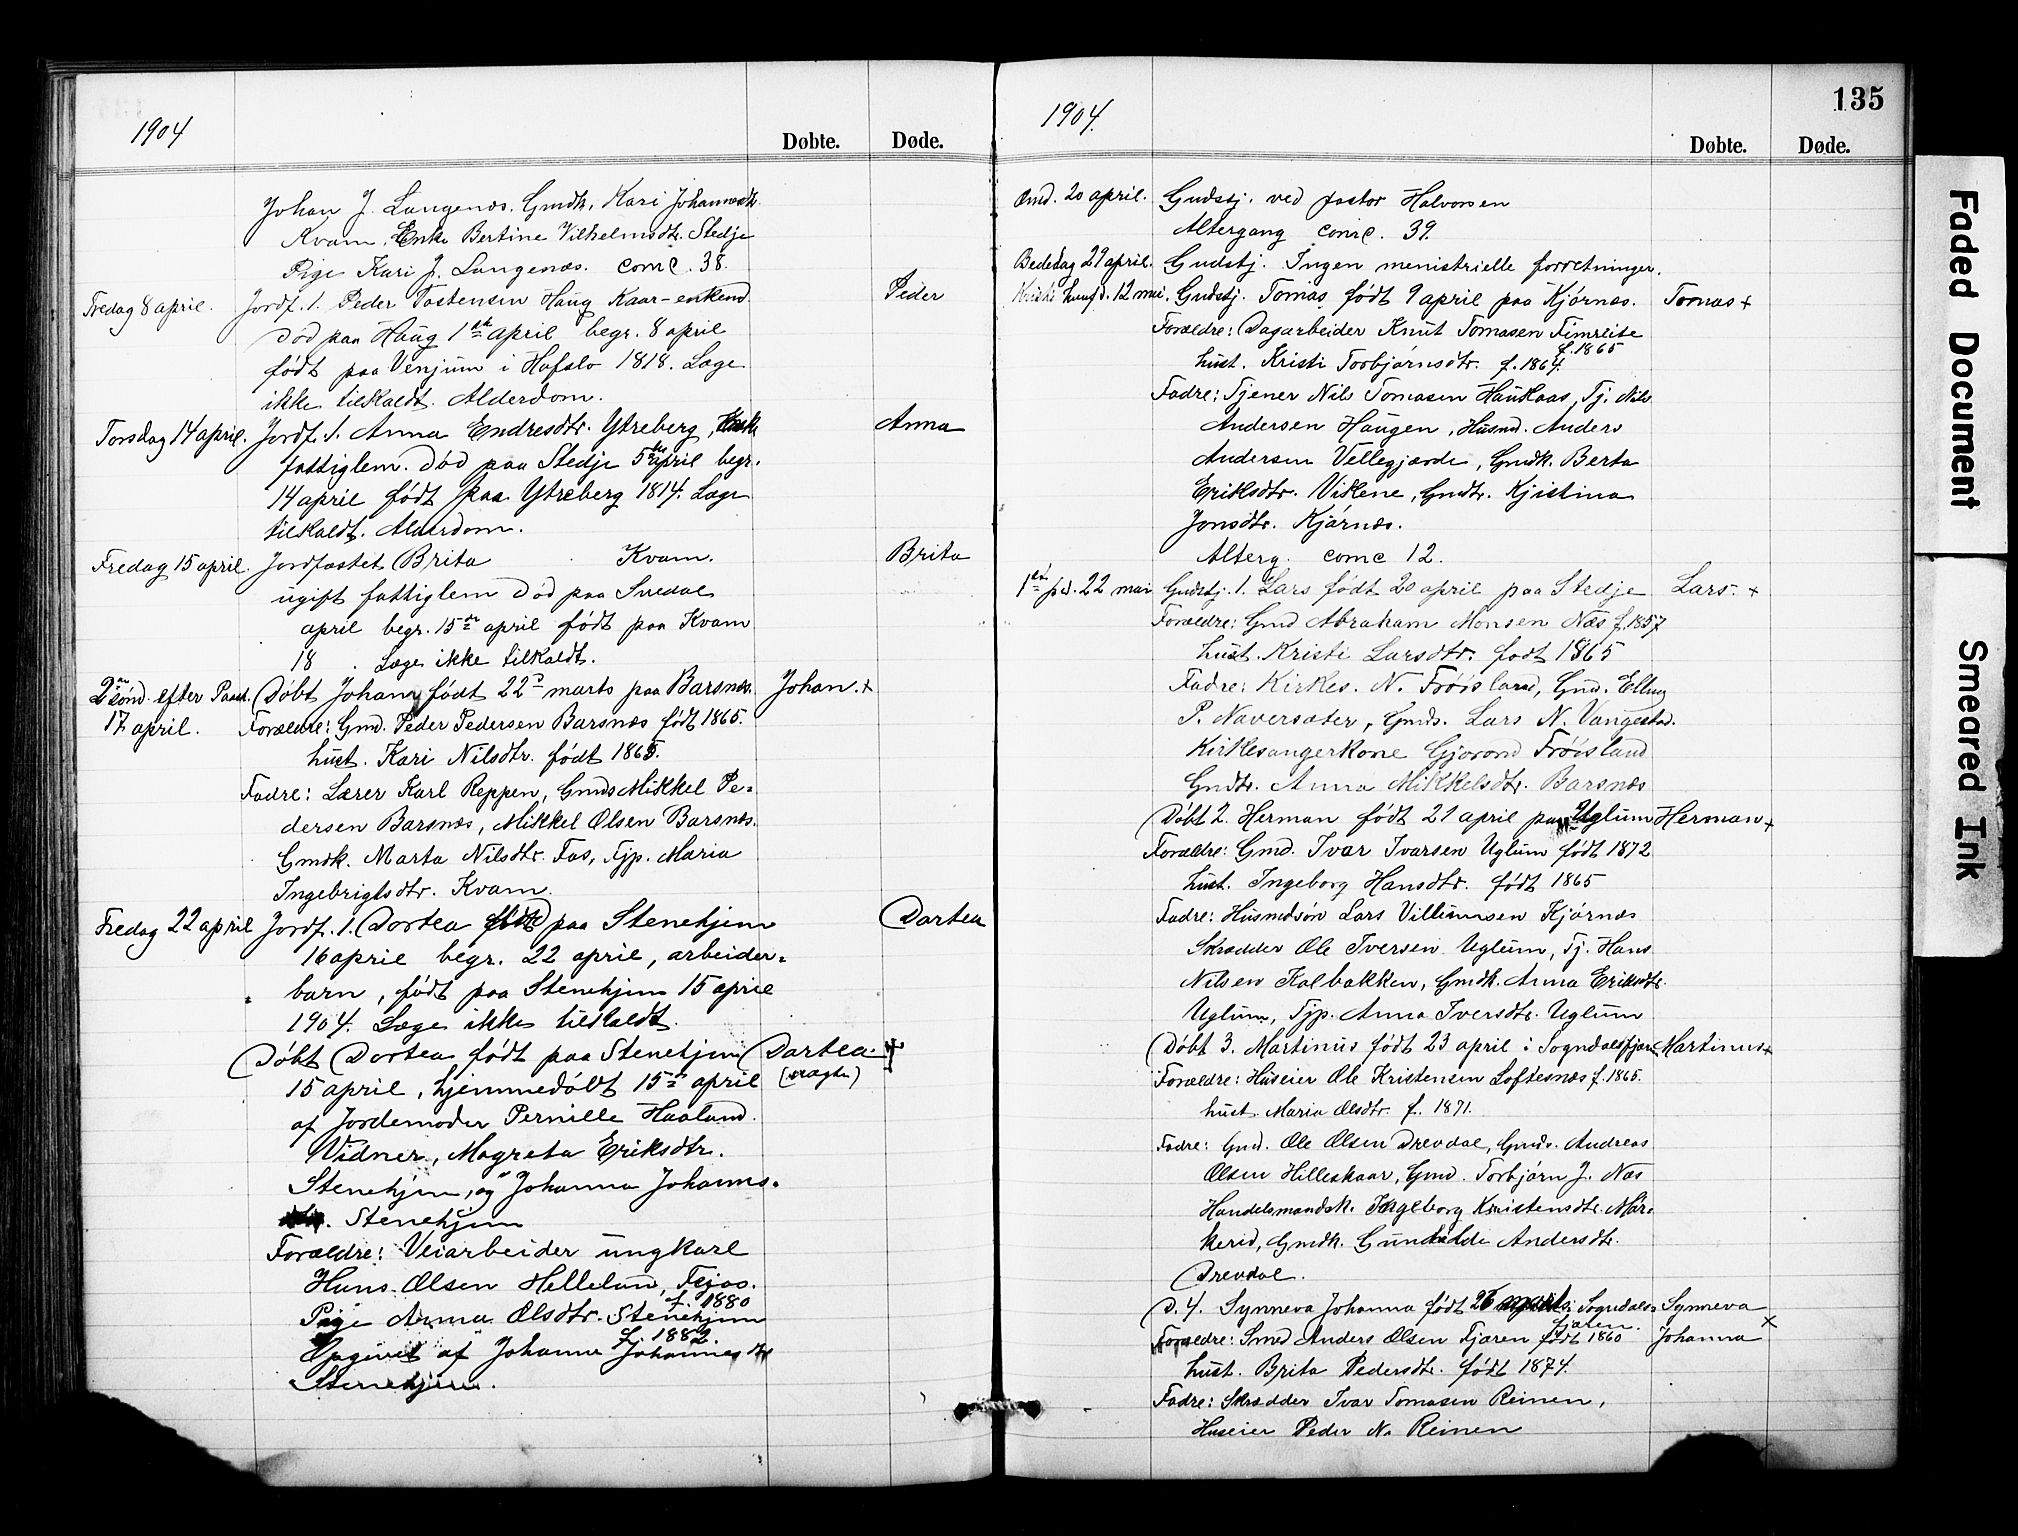 1904
Døbte. Døde.
Johan J. Langenæs. Gmdk. Kari Johannesdtr.
Kvam, Enke Bertine Vilhelmsdtr. Stedje
Pige Kari J. Langenæs. comc. 38.
Fredag 8 april. Jordf. 1. Peder Tostensen Haug Kaar-enkem. Peder
Død paa Haug 1ste april begr. 8 april
født paa Venjum i Hafslo 1818. Læge
ikke tilkaldt. Alderdom.
Torsdag 14 april. Jordf. 1. Anna Endresdtr. Ytreberg, Anna
fattiglem. Død paa Stedje 5te april begr.
14 april født paa Ytreberg 1814. Læge
tilkaldt. Alderdom.
Fredag 15 april. Jordfæstet Brita Kvam. Brita
ugift fattiglem Død paa Svedal
april begr. 15de april født paa Kvam
18 . Læge ikke tilkaldt.
2den sønd. efter Paask. Døbt Johan født 22de marts paa Barsnes. Johan. +
17 april. Forældre: Gmd. Peder Pedersen Barsnæs født 1865.
hust. Kari Nilsdtr. født 1865.
Fadre: Lærer Karl Reppen, Gmds Mikkel Pe-
dersen Barsnæs, Mikkel Olsen Barsnæs.
Gmdk. Marta Nilsdtr. Fos, Tjp. Maria
Ingebrigtsdtr. Kvam.
Fredag 22 april Jordf. 1. Dortea paa Stenehjem Dortea
16 april begr. 22 april, arbeider-
barn, født paa Stenehjem 15 april
1904. Læge ikke tilkaldt.
Døbt Dortea født paa Stenehjem Dortea. +
15 april, hjemmedøbt 15de april (uægte)
af Jordemoder Pernille Haaland.
Vidner, Magreta Eriksdtr.
Stenehjem, og Johanna Johannes-
Stenehjem
Forældre: Veiarbeider ungkarl
Hans Olsen Helleland, Fejos.
f. 1880
Pige Anna Olsdtr. Stenehjem
f. 1882.
Opgivet af Johanna Johannesdtr
Stenehjem.
1904.
135
Døbte. Døde.
Ond. 20 april. Gudstj. ved pastor Halvorsen
Altergang comc. 39.
Bededag 29 april. Gudstj. Ingen menistrielle forretninger.
Kristi himf.d. 12 mai. Gudstj. Tomas født 9 april paa Kjørnæs. Tomas +
Forældre: Dagarbeider Knut Tomasen Fimreite
f. 1865
hust. Kristi Torbjørnsdtr. f. 1864.
Fadre: Tjener Nils Tomasen Haukaas, Tj. Nils
Andersen Haugen, Husmd. Anders
Andersen Vellegjærde, Gmdk. Berta
Eriksdtr. Vikene, Gmdtr. Kjistina
Jonsdtr. Kjørnæs.
Alterg. comc 12.
1ste pd. 22 mai Gudstj. 1. Lars født 20 april paa Stedje Lars. +
Forældre: Gmd Abraham Monsen Næs f. 1857
hust. Kristi Larsdtr. født 1865
Fadre: Kirkes. N. Frøisland, Gmd. Elling
P. Navarsæter, Gmds. Lars N. Vangestad.
Kirkesangerkone Gjorond Frøisland
Gmdtr. Anna Mikkelsdtr. Barsnæs
Døbt 2. Herman født 21 april paa Uglum Herman +
Forældre: Gmd. Ivar Ivarsen Uglum født 1872
hust. Ingeborg Hansdtr. født 1865
Fadre: Husmdsøn Lars Villumsen Kjørnæs
Skrædder Ole Iversen Uglum, Tj. Hans
Nilsen Kolbakken, Gmdk. Anna Eriksdtr.
Uglum, Tjp. Anna Iversdtr. Uglum
Døbt 3. Martinus født 23 april i Sogndalsfjæren Martinus +
Forældre: Huseier Ole Kristensen Loftesnæs f. 1865.
hust. Maria Olsdtr. f. 1871.
Fadre: Gmd. Ole Olsen Drevdal, Gmds. Andreas
Olsen Hilleskaar, Gmd. Torbjørn J. Næs
Handelsmandsk. Ingeborg Kristensdtr. Mär-
kerid, Gmdk. Gunhilde Andersdtr.
Drevdal.
D. 4. Synneva Johanna født 26 marts i Sogndals- Synneva
fjæren. ×
Forældre: Smed Anders Olsen Fjæren født 1860 Johanna
hust. Brita Pedersdtr. født 1874.
Fadre: Skrædder Ivar Tomasen Reinen,
Huseier Peder N. Reinen
Faded Document
Smeared Ink